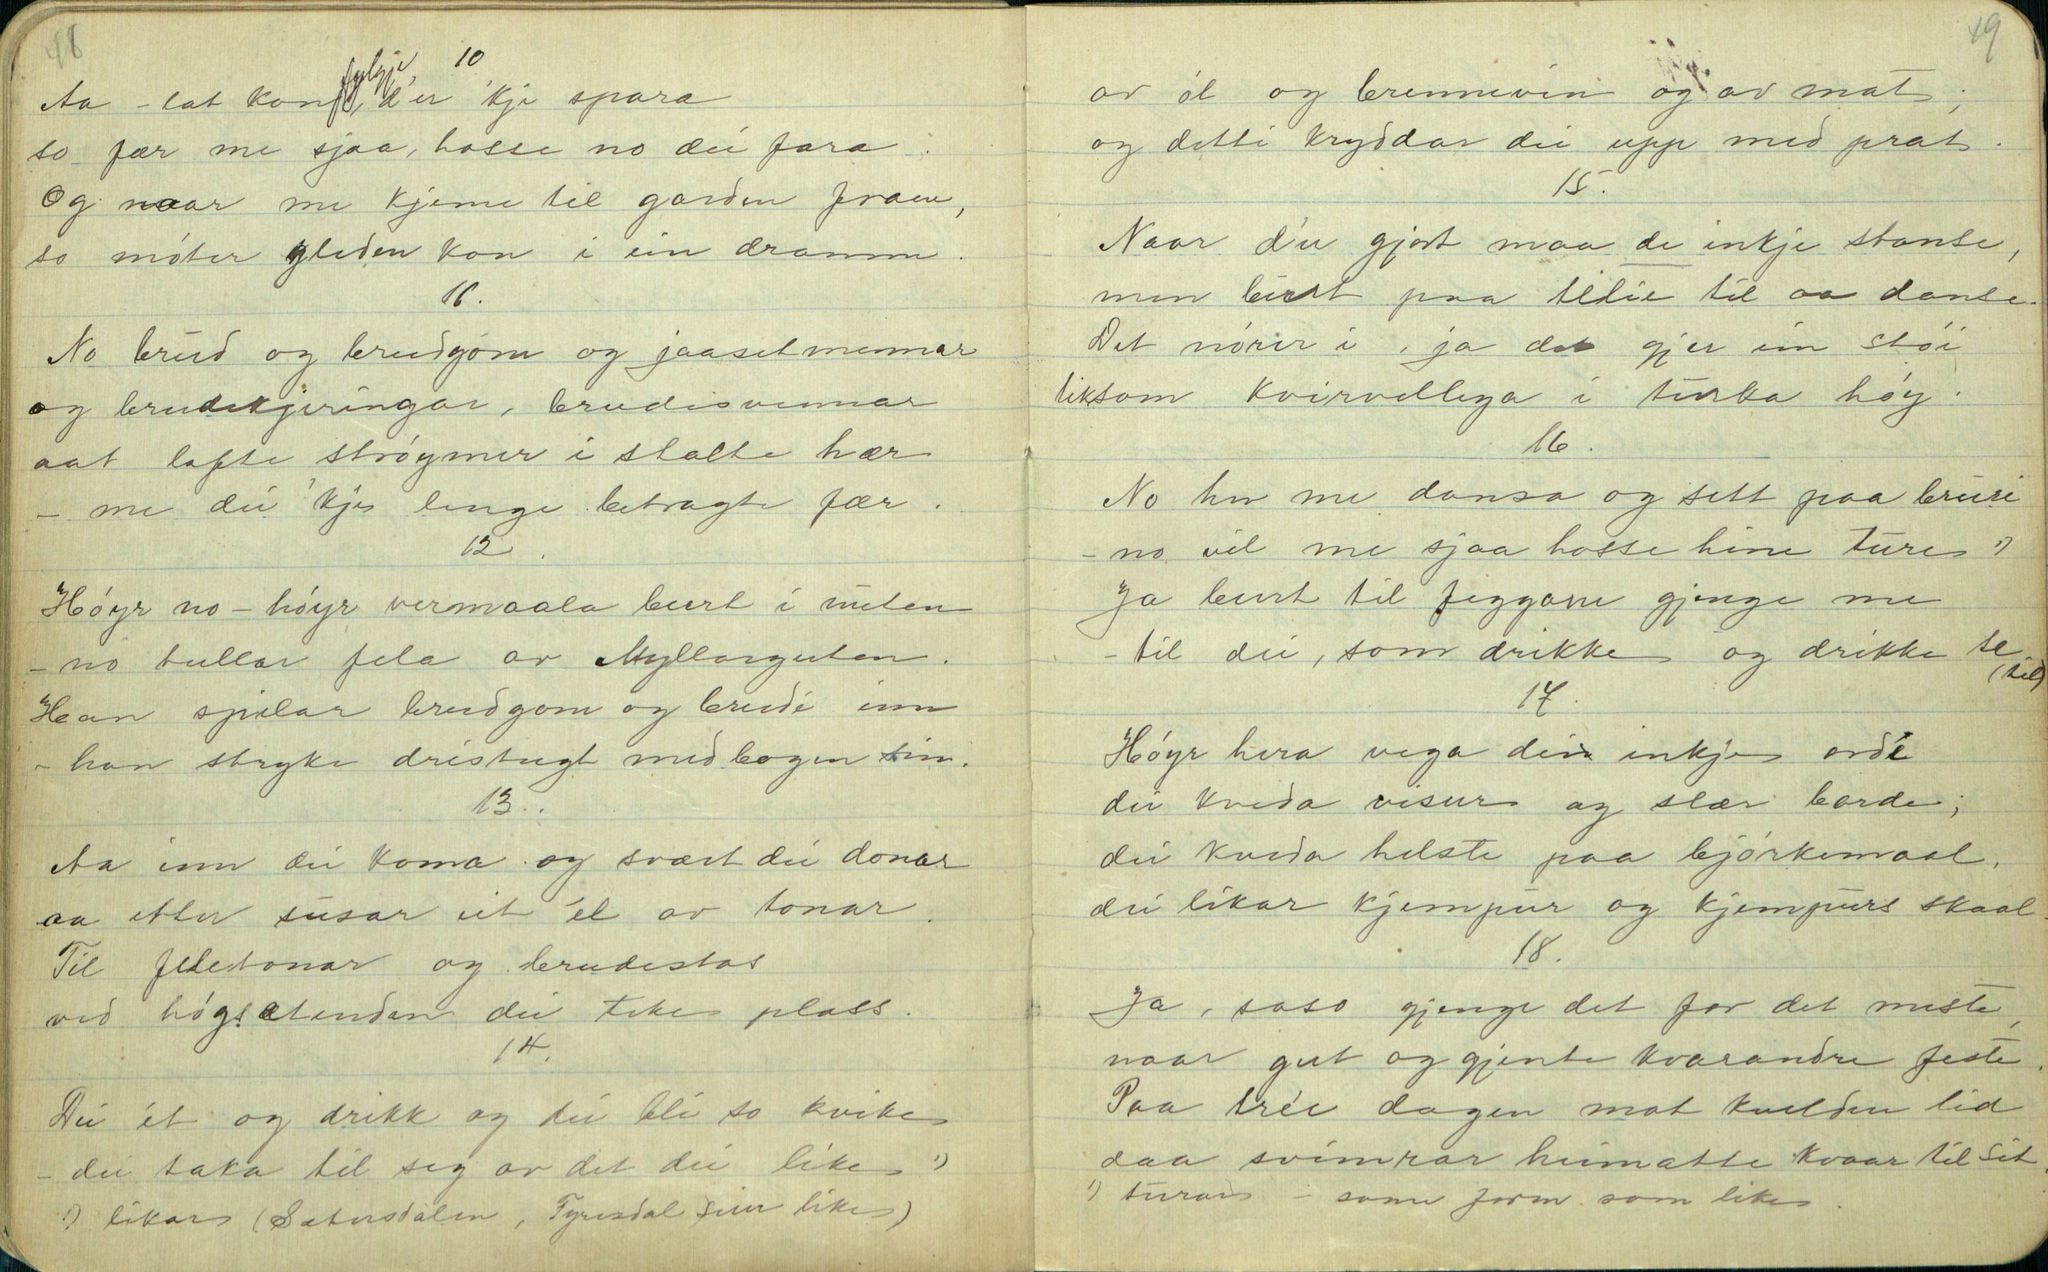 48
10
Aa - lat kon fylgje, d'er 'kje spara
so fær me sjaa, hosse no dei fara.
Og naar me kjeme til garden fram,
so møter gleden kon i ein dramm.
11.
No brud og brudgom og jaasetmennar
og brudekjeringar, brudesvennar
aat lofte strøymer i stalte hær
- me dei 'kje lenge betragte fær.
12.
Høyr no - høyr vermaala burt i nuten
- no tullar fela av Myllarguten.
Han spelar brudgom og brudi inn
- han stryke dristugt med bogen sin.
13.
Aa inn dei koma og svært dei donar
aa etter susar eit él av tonar.
Til feletonar og brudestas
ved høgsætenden dei teke plass.
14.
Dei ét og drikk og dei bli so kvike
- dei taka til seg av det dei like ¹)
¹) likar (Setersdalen, Tyresdal seier like)
49
av øl og brennevin og av mat;
og detti kryddar dei upp med prat.
15.
Naar d'er gjort maa de inkje stanse,
men burt paa tilie til aa danse.
Det nører i, ja det gjer ein støi
liksom kvirvellega i turka høy.
16.
No he me dansa og sett paa bruri
- no vil me sjaa hosse hine ture ¹)
Ja burt til feggane gjenge me
- til dei, som drikke og drikke te
(til)
17.
Høyr hera vega dei inkje ordi
dei kveda visur og slær borde;
dei kveda helste paa bjørkemaal,
dei likar kjempur og kjempurs skaal.
18.
Ja, saso gjenge det for det meste,
naar gut og gjente kvarandre feste.
Paa tréé dagen mot kvelden lid
daa svimrar heimatte kvaar til sit.
¹) turar - same form som like.